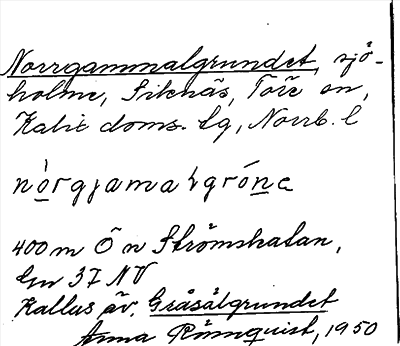 Norrgammalgrundet, sjö-
holme, Siknäs, Töre sn,
Kalix doms. lg, Norrb. l
nòrgjamalgróne
400 m Ö n Strömshatan,
Gn 37 NV
Kallas äv. Gråsälgrundet
Anna Rönnquist, 1950